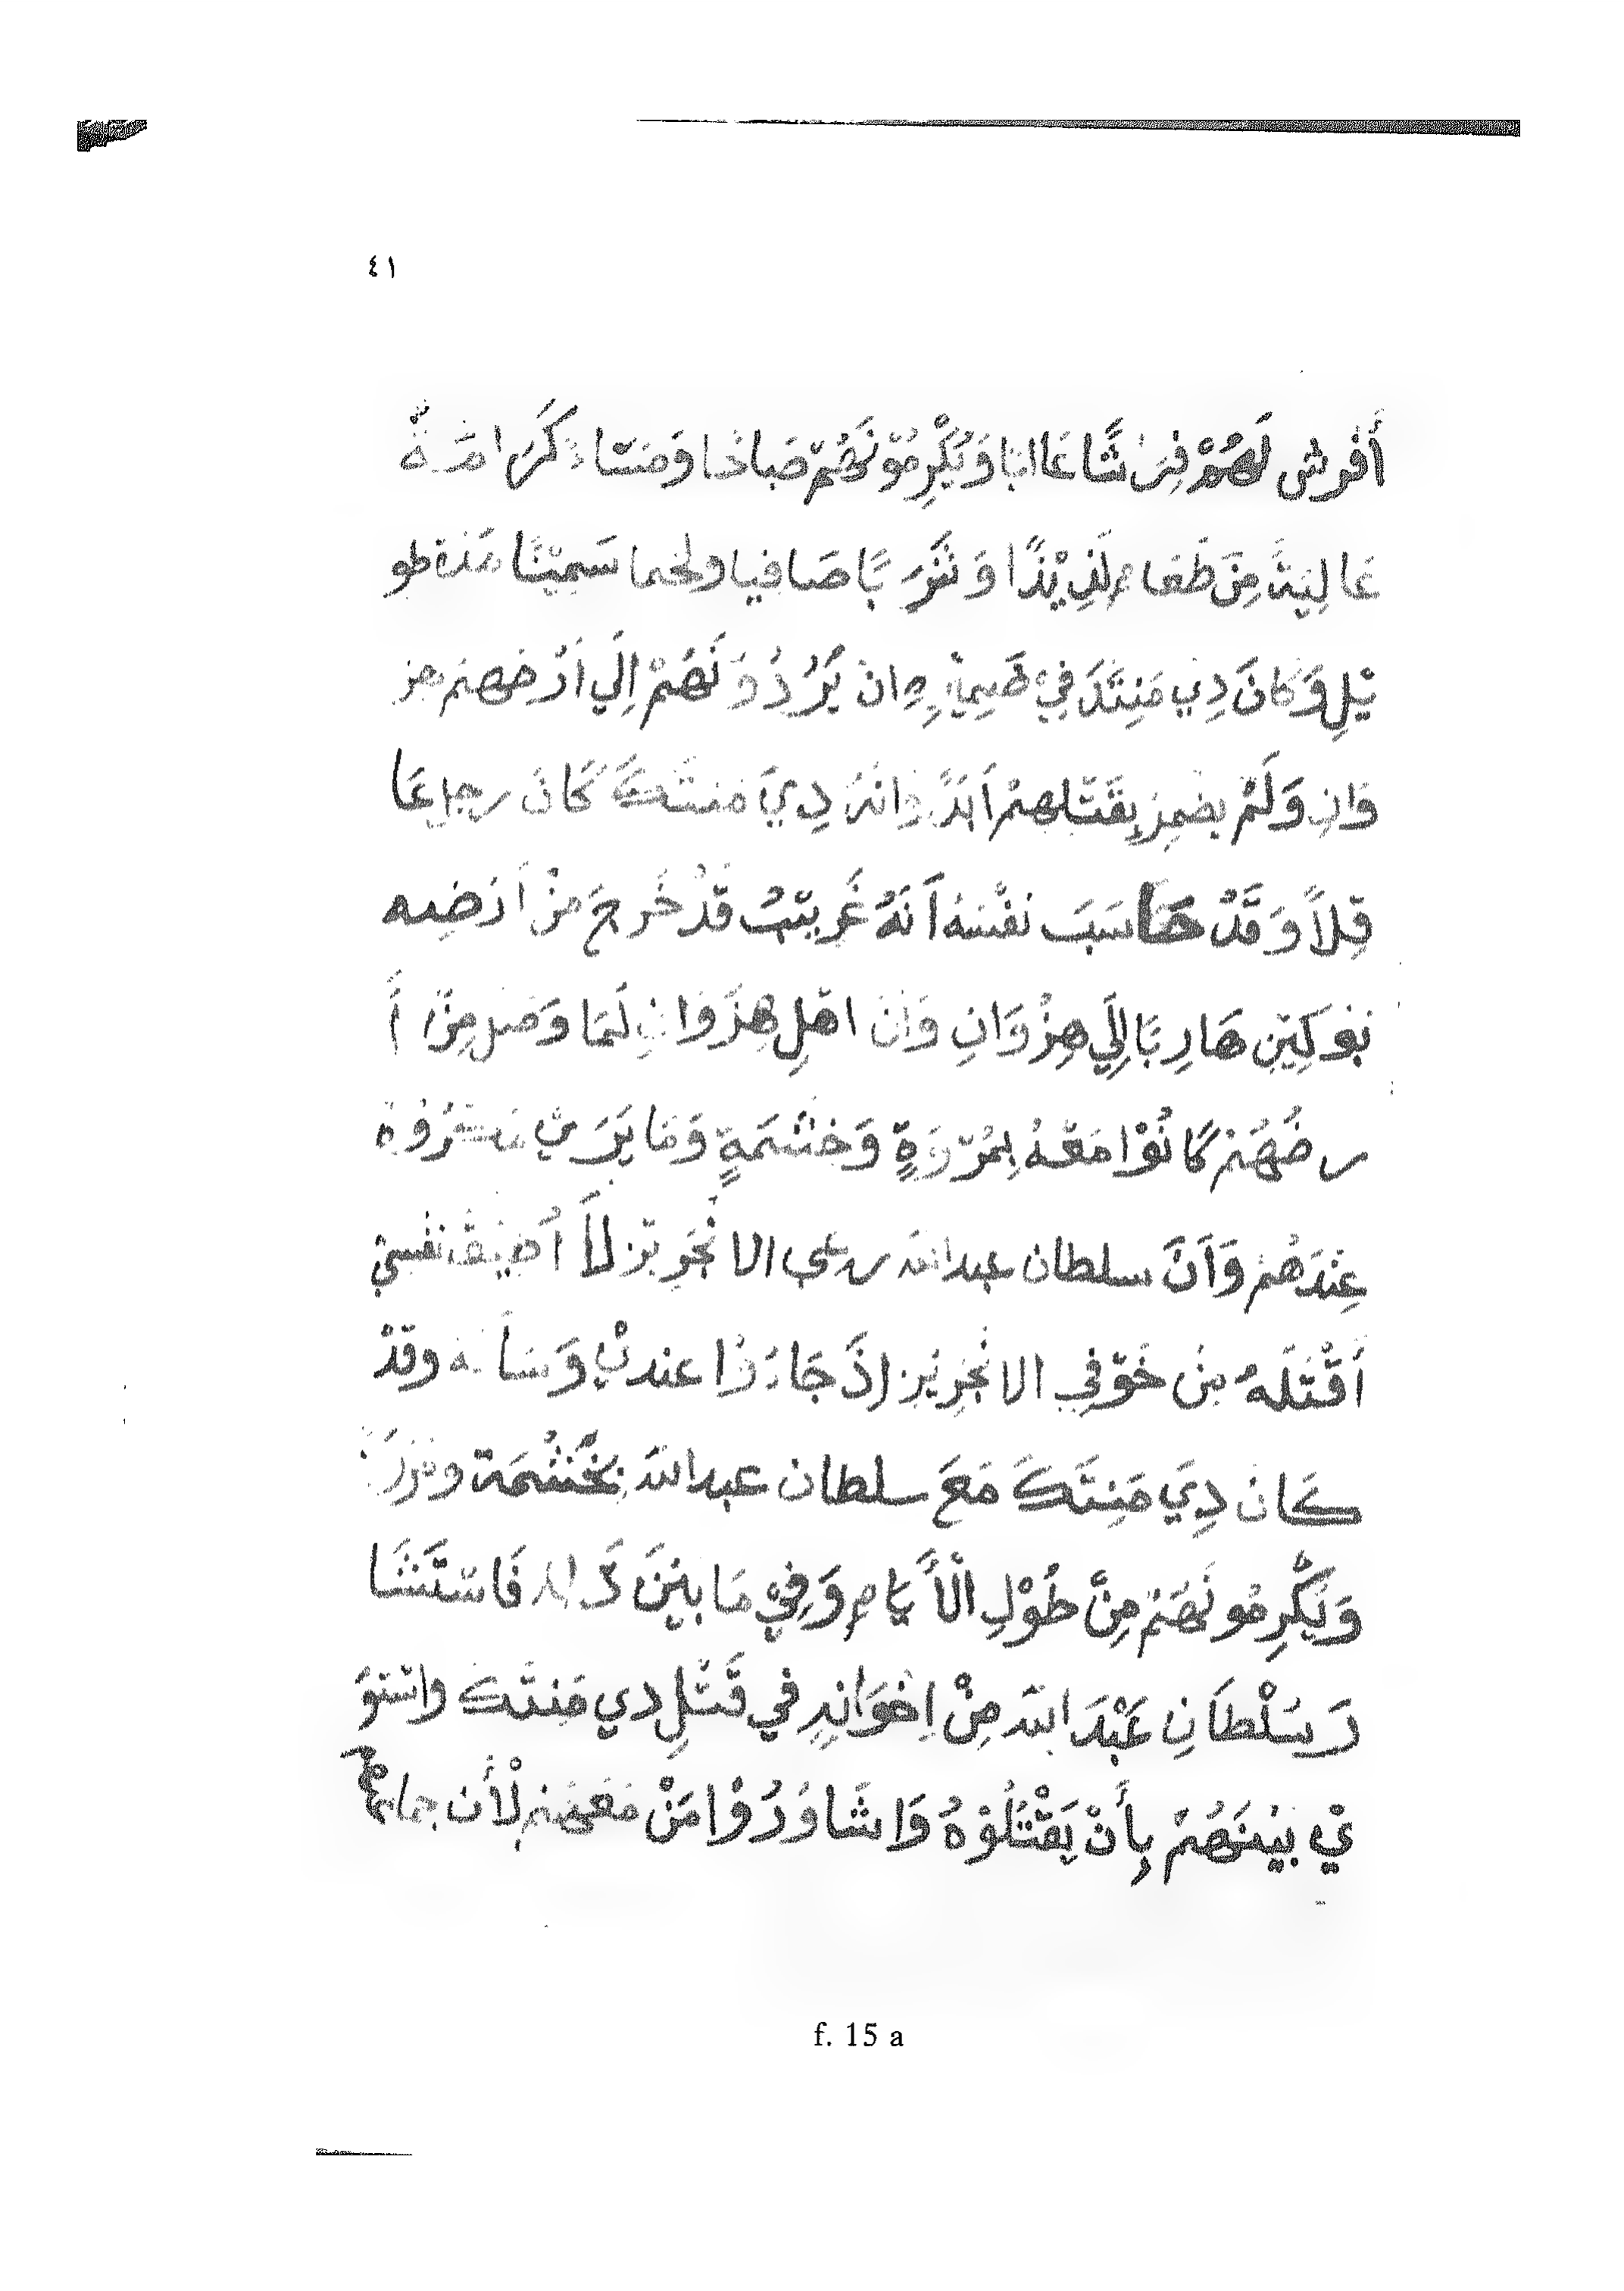 ٤١
أَفْرش لَهُمْ فِرَشًا عَاليا وَيُكْرِمُوْنَهُمْ صَباحا وَمَسَا كَرَامَةً
عَالِيَةً مِنَ طَعَام لَذِيْذًا وَ صَافيا ولحما سَمِيْنًا مُدة طو
يْلِ وَكانَ دِي مَنِتَكَ فِيْ ضَمِيْرِهِ ان يَرُدُوْنَهُمْ اِلَي اَرْضهم هز
وَانِ وَلَمْ يضمِر بِقَتْلِهِمْ اَبَدًا وَانهُ دِيَ مَنتَكَ كَانَ رجل عَا
قِلاً وَقَدْ حَاسَبَ نفْسَهُ اَنَهُ غَرِيْبٌ قَدْ خَرجَ مِنْ اَرْضِه
بُوكِيْنِ هَارِبًا اِلَي هِزْوَانِ وَانَ اهْلِ هِزْوَانِ لَمَا وَصَل مِنْ أَ
رضُهُمْ كَانُوْا مَعَهُ بِمُرُوَةٍ وَحَشْمَةٍ وَمَا يَرَي
عِنْدَهُمْ وَاَنَّ سلطان عبدالله رءي الانْجَرِيْز لاَ أُضِيْفُ نفْسِيْ
اَقْتُلَهُ مِنْ خَوْفِي الانْجَرِيْز اِذَ جَاءُوْا عندي وَسَأَله وقدْ
كَان دِيَ مَنِتَكَ مَعَ سلطان عبدالله بِحَشْمَة
وَيُكْرِمُونَهُمْ مِنْ طُوْلِ الْأَيَام وَفِيْ مَا بيْنَ ذَلك فَاسْتَشَا
رَ سُلْطَانِ عَبْدَ الله مِنْ اِخْوَانِهِ في قَتْلِ دي مَنتَكَ واسْتَوَ
يْ بَيْنَهُمْ بِأَنْ يَقْتُلُوْهُ وَاشَاوُرُوْا مَنْ مَعَهُمْ لْأَن
f. 15 a